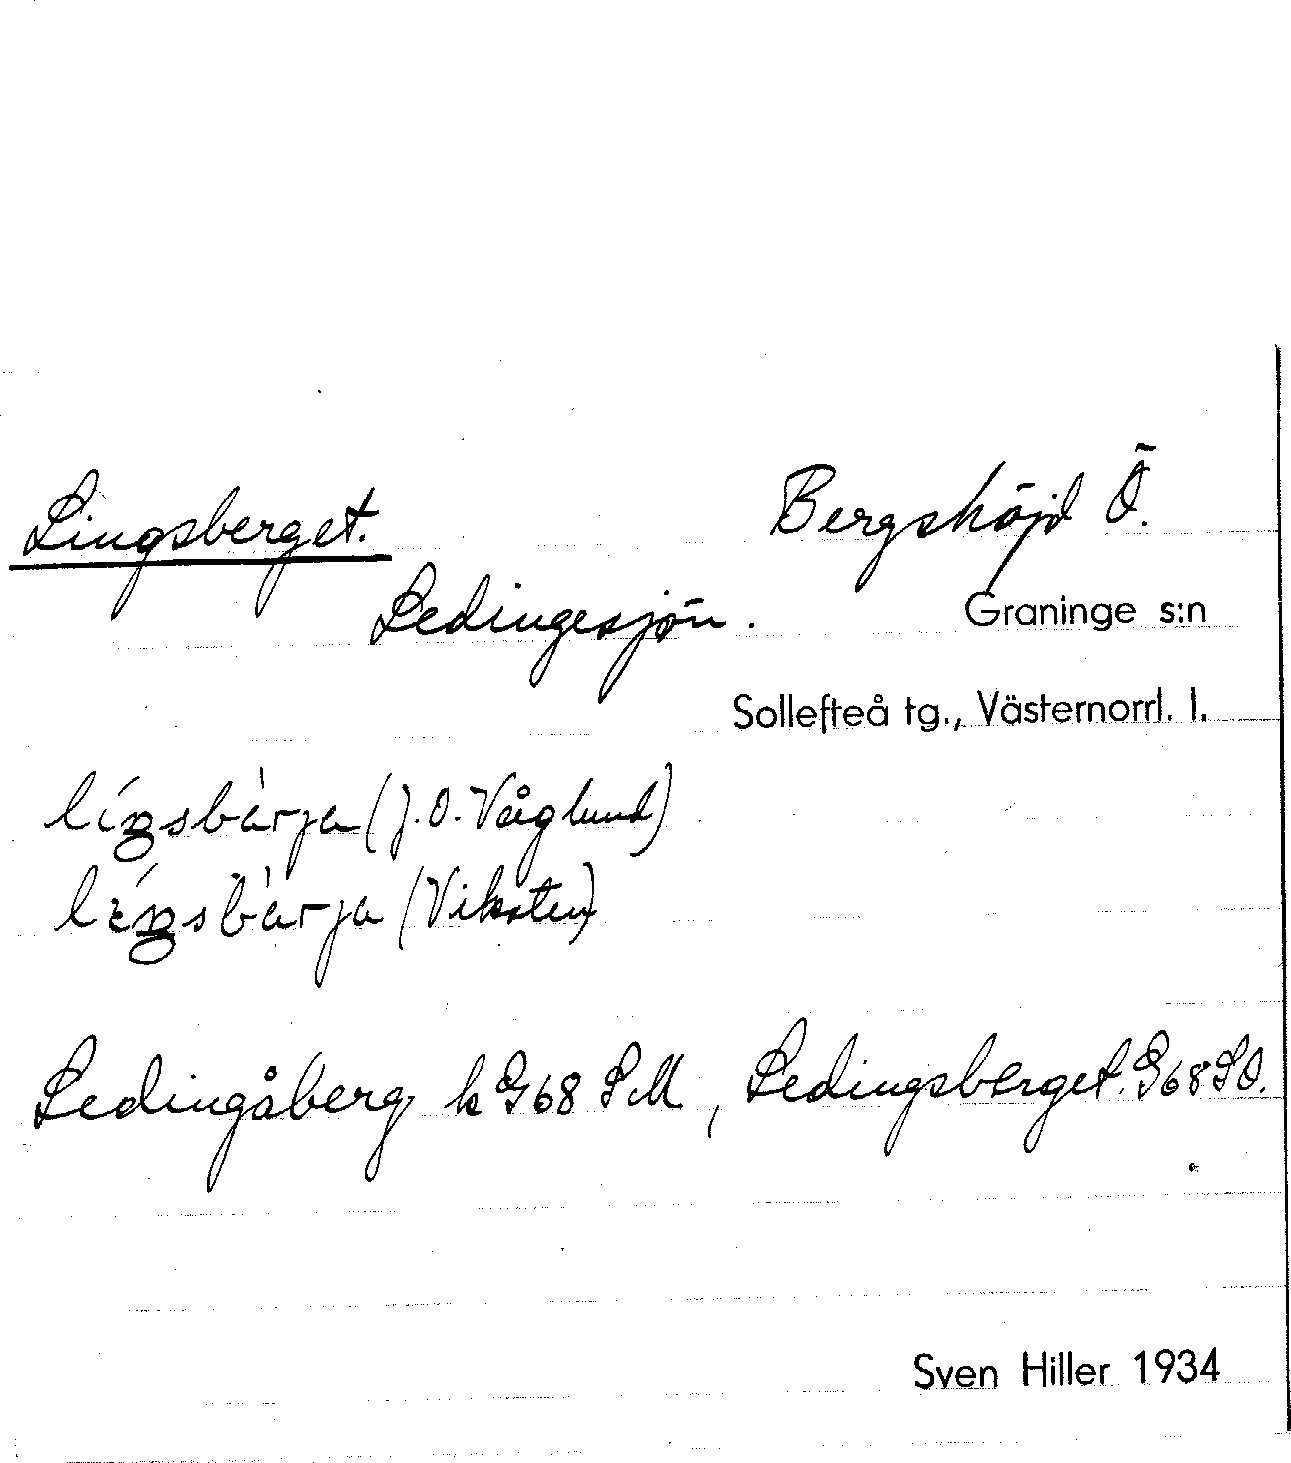 Lingsberget. Bergshöjd Ö.
Ledingesjön. Graninge s:n
Sollefteå tg., Västernorrl. l.
(J.O. Våglund)
(Viksten)
Ledingåberg k G68 SM, Ledingsberget. G68 SO.
Sven Hiller 1934